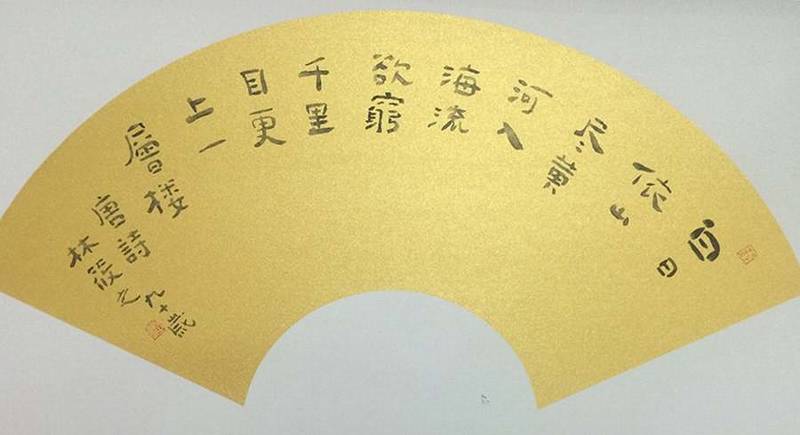 白日
依山
尽黄
河入
海流
欲窮
千里
目更
上一
層楼
唐詩
林筱之九十歲